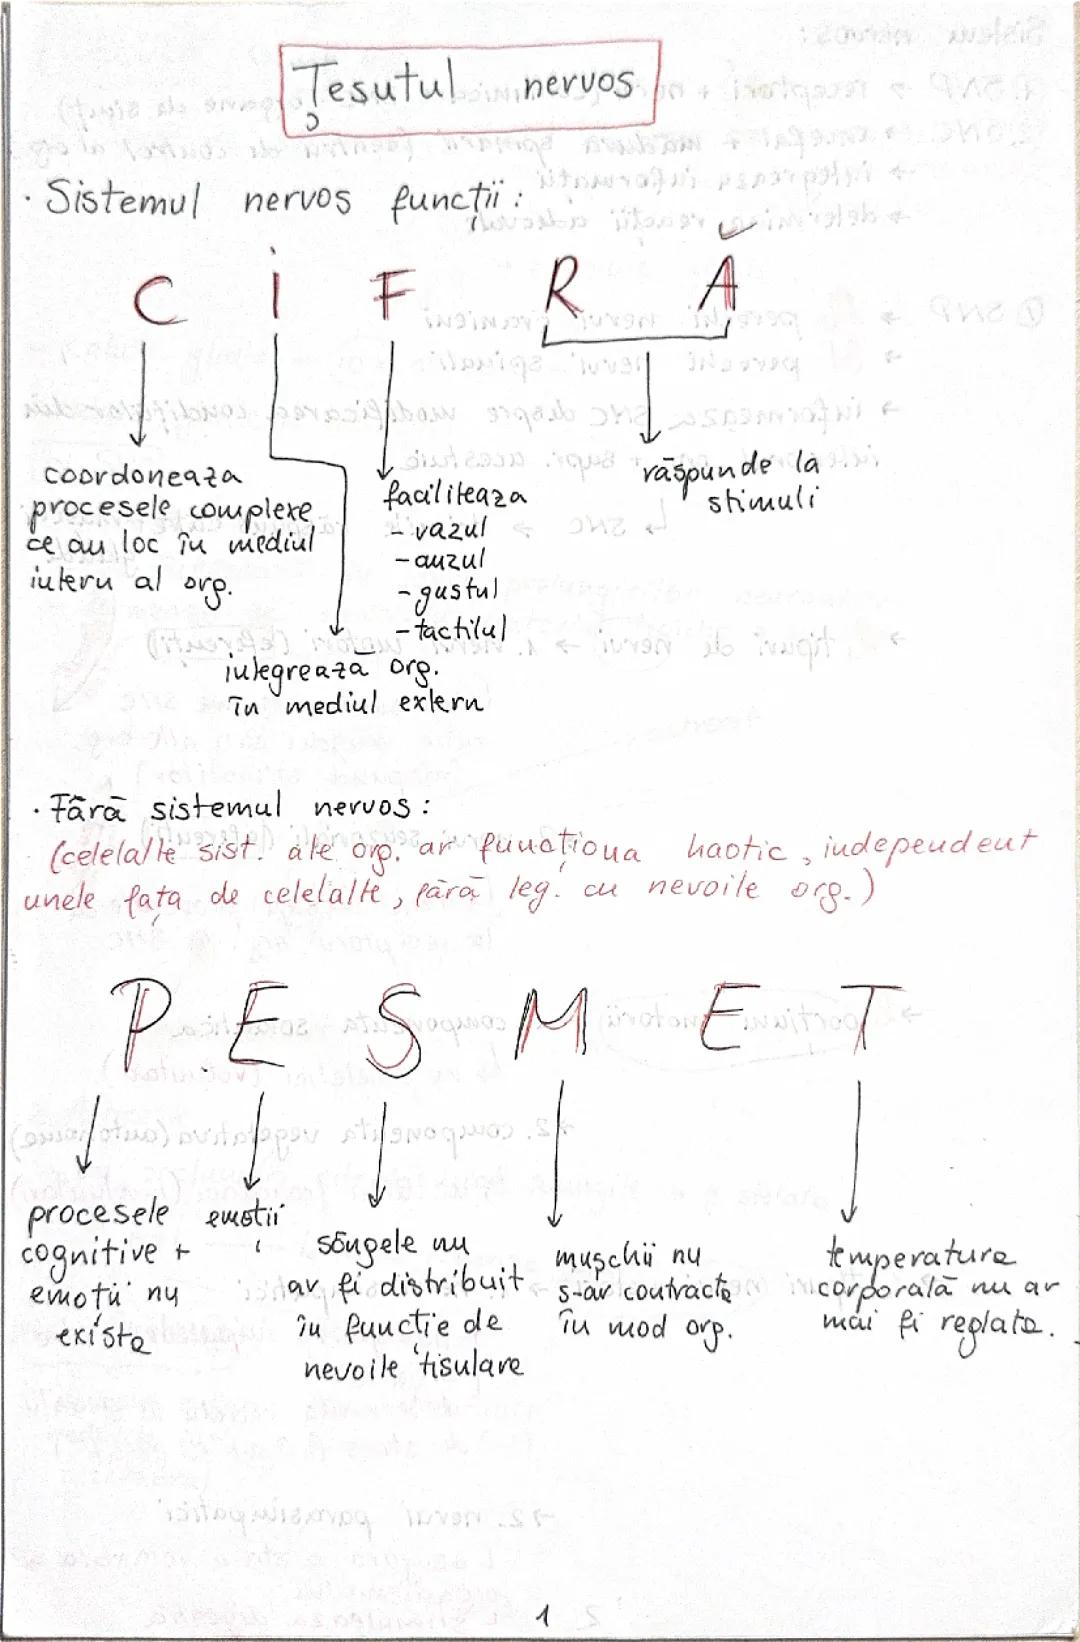 Țesutul nervos
· Sistemul nervos funcții:
C I F R Ă
coordoneaza
procesele complexe
ce au loc în mediul
intern al org.
integrează org.
în mediul extern
faciliteaza
- vazul
- auzul
- gustul
- tactilul
răspunde la
stimuli
· Fără sistemul nervos:
(celelalte sist. ale org. ar funcționa haotic, independent
unele față de celelalte, fără leg. cu nevoile org.)
P E S M E T
procesele
cognitive +
emoții nu
existe
emoții
sângele nu
ar fi distribuit
în funcție de
nevoile tisulare
mușchii nu
s-ar contracta
în mod org.
temperatura
corporală nu ar
mai fi reglata.
1